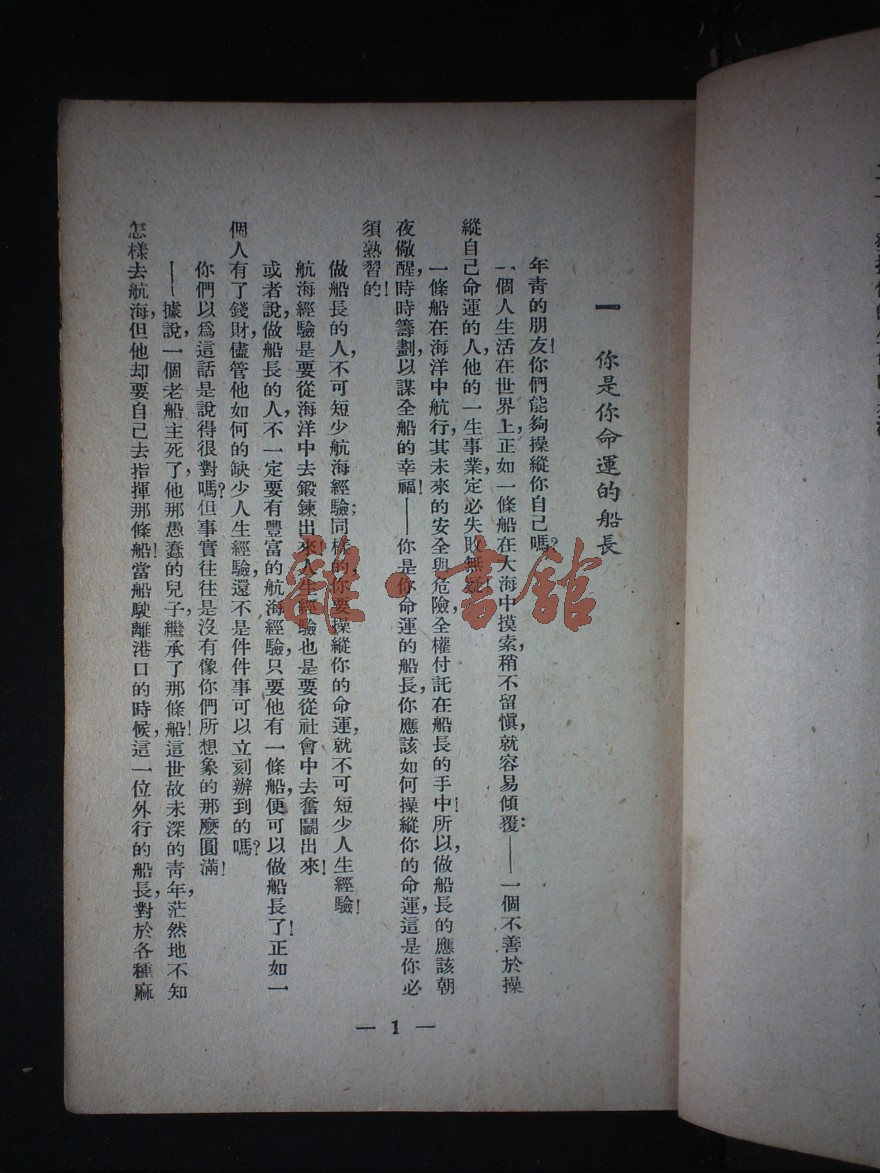 一　你是你命運的船長
年青的朋友！你們能夠操縱你自己嗎？
一個人生活在世界上，正如一條船在大海中摸索，稍不留慎，就容易傾覆：——一個不善於操
縱自己命運的人，他的一生事業，定必失敗無疑！
一條船在海洋中航行，其未來的安全與危險，全權付託在船長的手中！所以，做船長的應該朝
夜儆醒，時時籌劃，以謀全船的幸福！——你是你命運的船長，你應該如何操縱你的命運，這是你必
須熟習的！
做船長的人，不可短少航海經驗；同樣的，你要操縱你的命運，就不可短少人生經驗！
航海經驗是要從海洋中去鍛鍊出來！人生經驗也是要從社會中去奮鬭出來！
或者說，做船長的人，不一定要有豐富的航海經驗，只要他有一條船，便可以做船長了！正如一
個人有了錢財，儘管他如何的缺少人生經驗，還不是件件事可以立刻辦到的嗎？
你們以爲這話是說得很對嗎？但事實往往是沒有像你們所想象的那麼圓滿！
——據說，一個老船主死了，他那愚蠢的兒子，繼承了那條船！這世故未深的青年，茫然地不知
怎樣去航海，但他却要自己去指揮那條船！當船駛離港口的時候，這一位外行的船長，對於各種麻
— 1 —
雜·書館